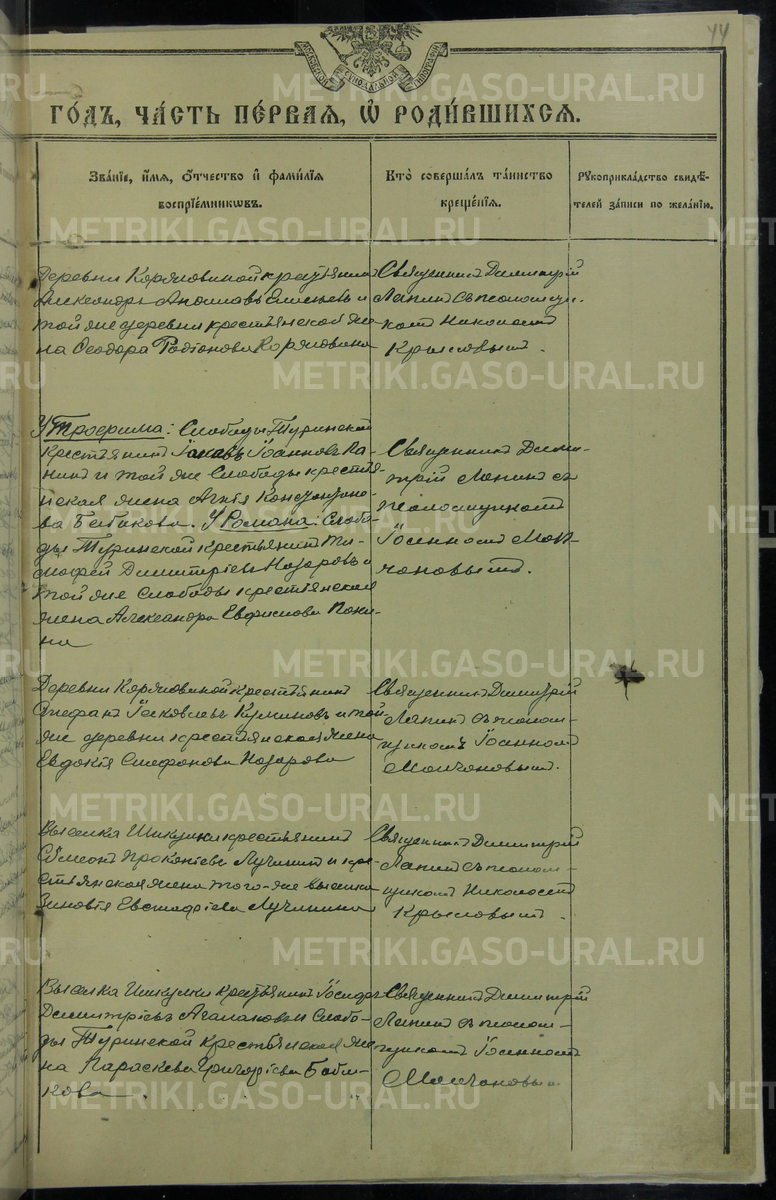 44
МОСКОВСКОЙ СѴНОДАЛЬНОЙ ТИПОГРАФІИ
ГО́ДЪ, ЧА́СТЬ ПЕ́РВАЯ, Ѡ҆ РОДИ́ВШИХСЯ.
Зва́нїе, и҆́мя, ѻ҆́тчество и҆ фами́лїя
воспрїе́мниковъ.
Кто̀ соверша́лъ та́инство
креще́нїя.
Рꙋкоприкла́дство свидѣ́-
телей за́писи по жела́нїю.
Деревни Коряковиной крестьянинъ
Александръ и
той же деревни крестьянская же-
на Ѳеодора Родіонова Корякова
Священникъ Димитрій
Лапинъ съ псаломщи-
комъ Николаемъ
Крысовымъ.
У Трофима: Слободы Туринской
крестьянинъ Іаковъ Іоанновъ Па-
нинъ и той же Слободы крестья-
нская жена Агнія Константино-
ва Бабикова. У Романа: Слобо-
ды Туринской крестьянинъ Ти-
мофей Димитріевъ Назаровъ и
той же слободы крестьянская
жена Александра Панки-
на
Священникъ Дими-
трій Лапинъ съ
псаломщикомъ
Іоанномъ Мол-
чановымъ.
Деревни Коряковиной крестьянинъ
Стефанъ Іаковлевъ Куминовъ и той
же деревни крестьянская жена
Евдокія Стефанова Назарова
Священникъ Димитрій
Лапинъ съ псалом-
щикомъ Іоанномъ
Молчановымъ.
Выселка Шикулки крестьянинъ
Сѵмеонъ Прокопіевъ Лучининъ и кре-
стьянская жена того-же выселка
Зиновія Евстафіева Лучинина
Священникъ Димитрій
Лапинъ съ псалом-
щикомъ Николаемъ
Крысовымъ.
Выселка Шикулки крестьянинъ
Димитріевъ и Слобо-
ды Туринской крестьянская же-
на Параскева Григоріева Баби-
кова.
Священникъ Димитрій
Лапинъ съ псалом-
щикомъ Іоанномъ
Молчановымъ.
METRIKI.GASO-URAL.RU